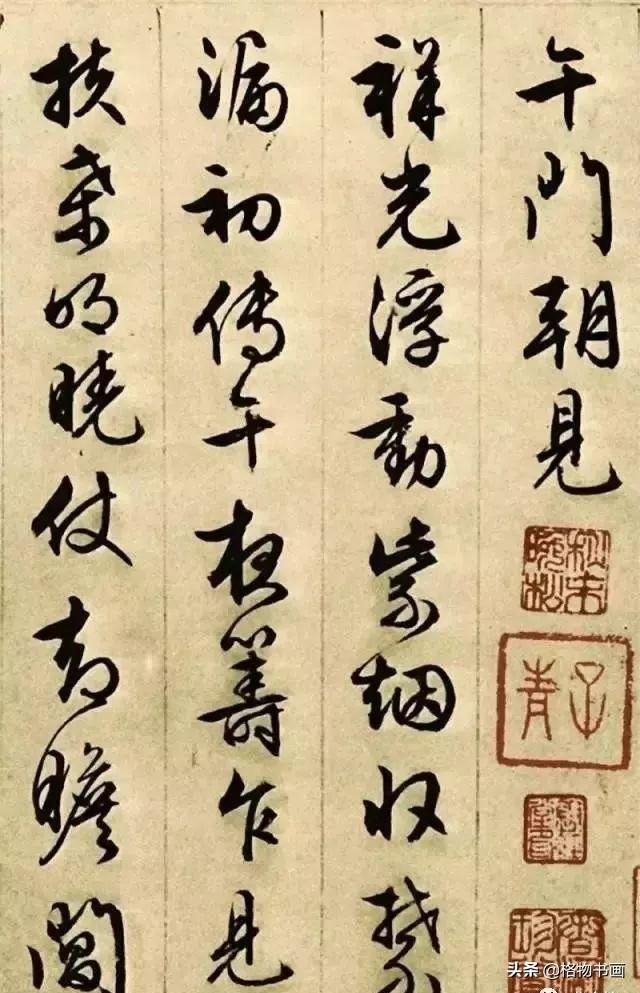 午門朝見
祥光浮動紫烟收禁
漏初傳午夜籌乍見
扶桑明曉仗却瞻閶
子青
头条 @格物书画